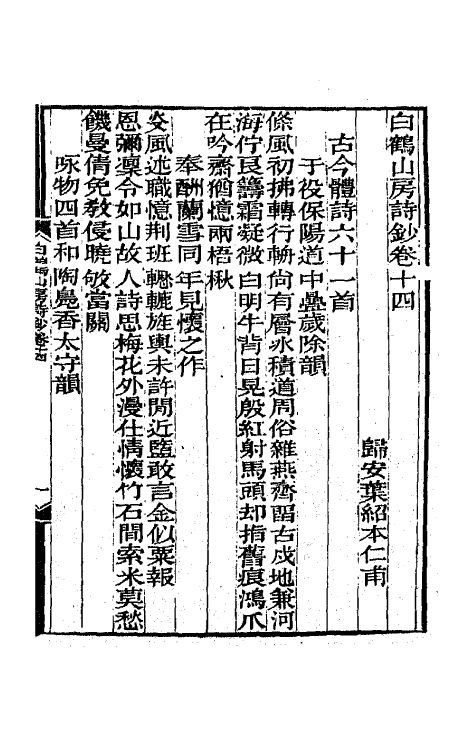 白鶴山房詩鈔卷十四
歸安葉紹本仁甫
古今體詩六十一首
于役保陽道中疊歲除韻
條風初拂轉行輈尚有層冰積道周俗雜燕齊留古戍地兼河
海佇良籌霜凝微白明牛背日晃殷紅射馬頭却指舊痕鴻爪
在吟齋猶憶兩梧楸
奉酬蘭雪同年見懷之作
受風述職憶荆班轣轆旌輿未許閒近鹽敢言金似粟報
恩彌凜令如山故人詩思梅花外漫仕情懷竹石間索米莫愁
饑曼倩免教侵曉敂當關
咏物四首和陶鳧香太守韻
白鶴山房詩鈔卷十四
一